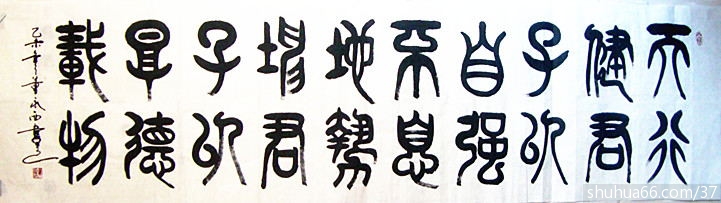 天行
健君
子以
自强
不息
地勢
坤君
子以
厚德
載物
乙未年
shuhua66.com/37